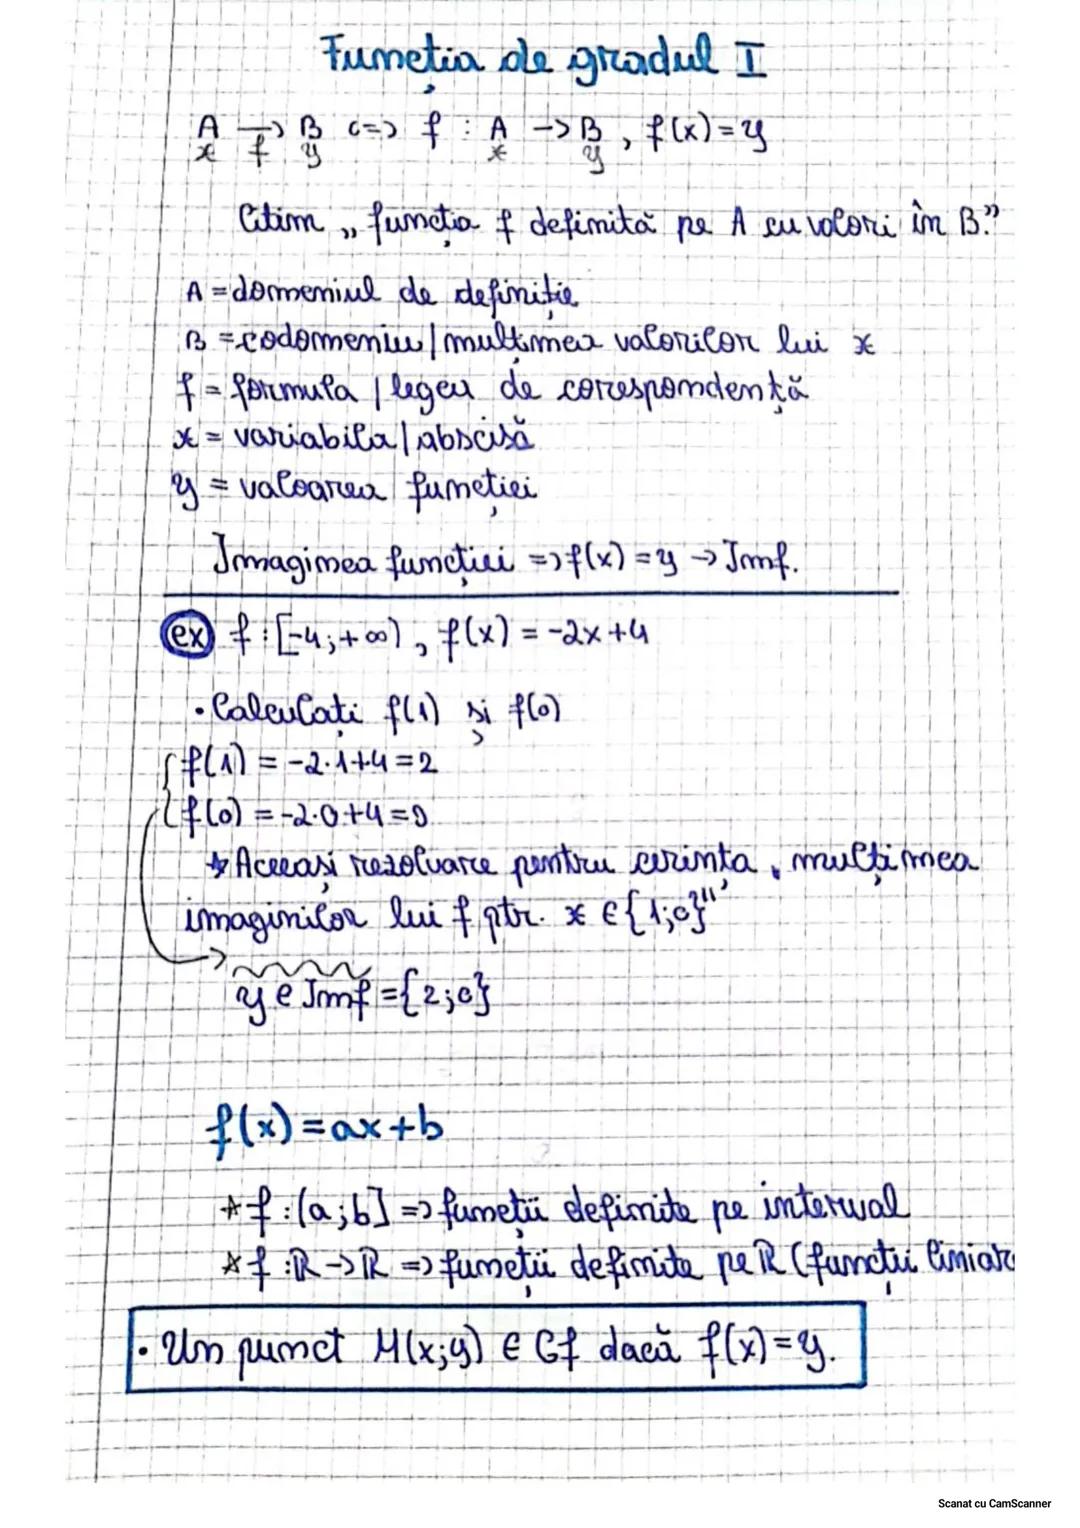 Funcția de gradul I
A → B <=> f : A → B, f(x) = y
x f y x y
Citim „funcția f definită pe A cu valori în B.”
A = domeniul de definiție
B = codomeniu / mulțimea valorilor lui x
f = formula / legea de corespondență
x = variabila / abscisă
y = valoarea funcției
Imaginea funcției => f(x) = y → Imf.
ex f : [-4; +∞), f(x) = -2x+4
• Calculați f(1) și f(0)
f(1) = -2·1+4 = 2
f(0) = -2·0+4 = 0
* Aceeași rezolvare pentru cerința „mulțimea
imaginilor lui f ptr. x ∈ {1;0}"
y ∈ Imf = {2;0}
f(x) = ax+b
* f : (a;b] => funcții definite pe interval
* f : ℝ → ℝ => funcții definite pe ℝ (funcții liniare
• Un punct M(x;y) ∈ Gf dacă f(x) = y.
Scanat cu CamScanner